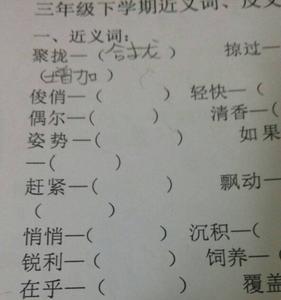 三年级下学期近义词、反义
一、近义词：
聚拢—（合拢） 掠过—
（增加）
俊俏—（ ） 轻快—（
偶尔—（ ） 清香—（
姿势—（ ） 如果
—（ ）
赶紧—（ ） 飘动—
（ ）
悄悄—（ ） 沉积—（
锐利—（ ） 饲养—（
在乎—（ ） 覆盖